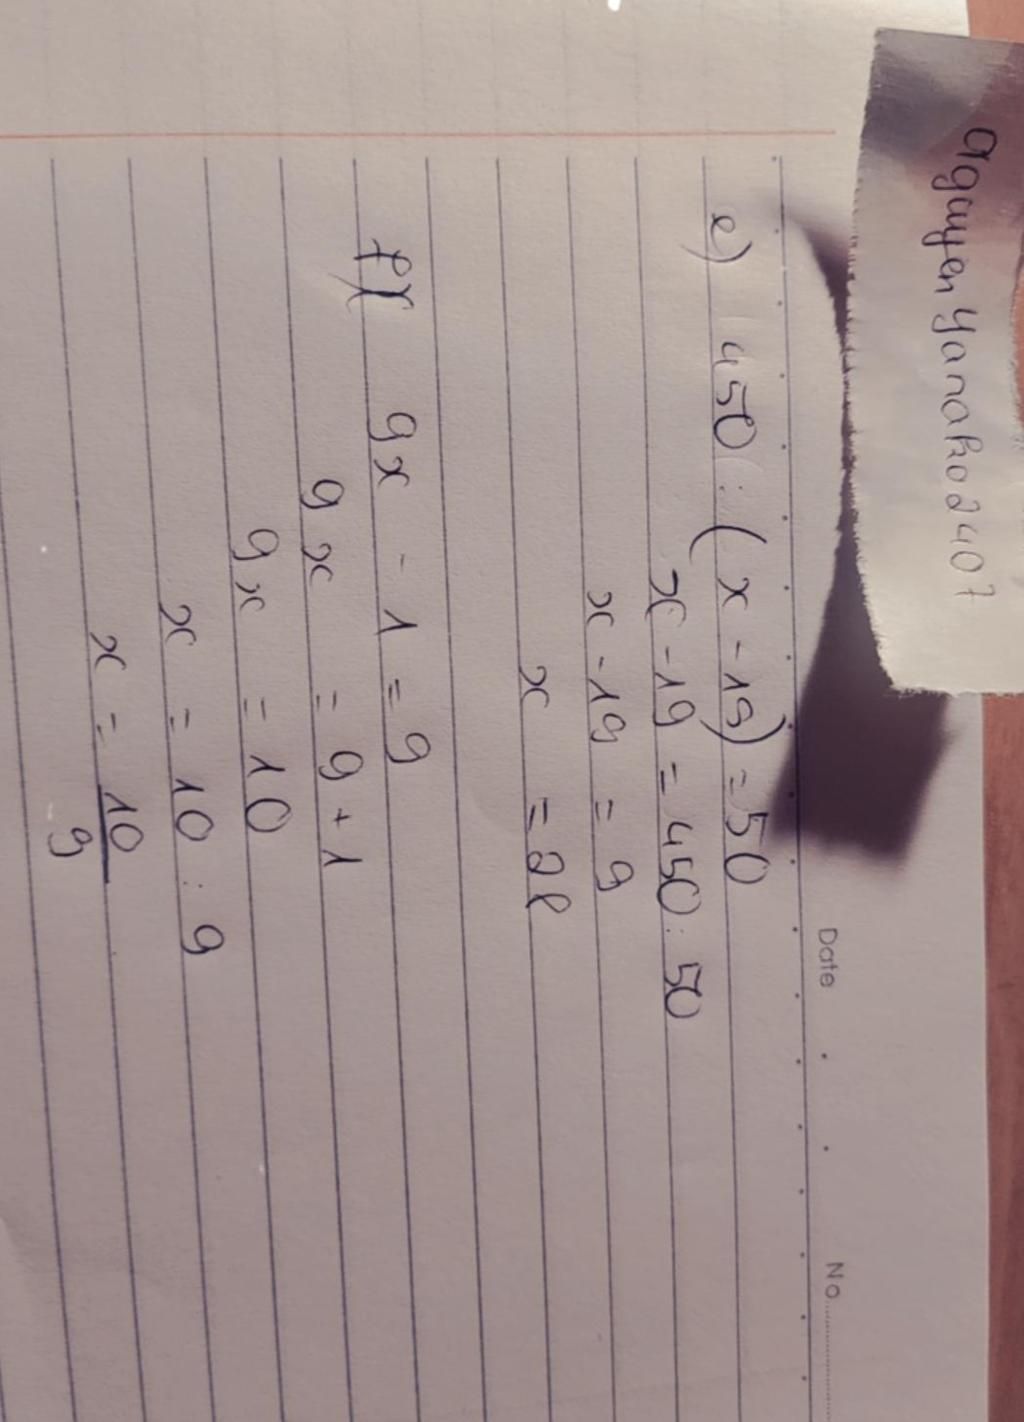 nguyen yanako2407
Date
No
e) 450 : (x - 19) = 50
x - 19 = 450 : 50
x - 19 = 9
x = 28
f) 9x - 1 = 9
9x = 9 + 1
9x = 10
x = 10 : 9
x = 10/9